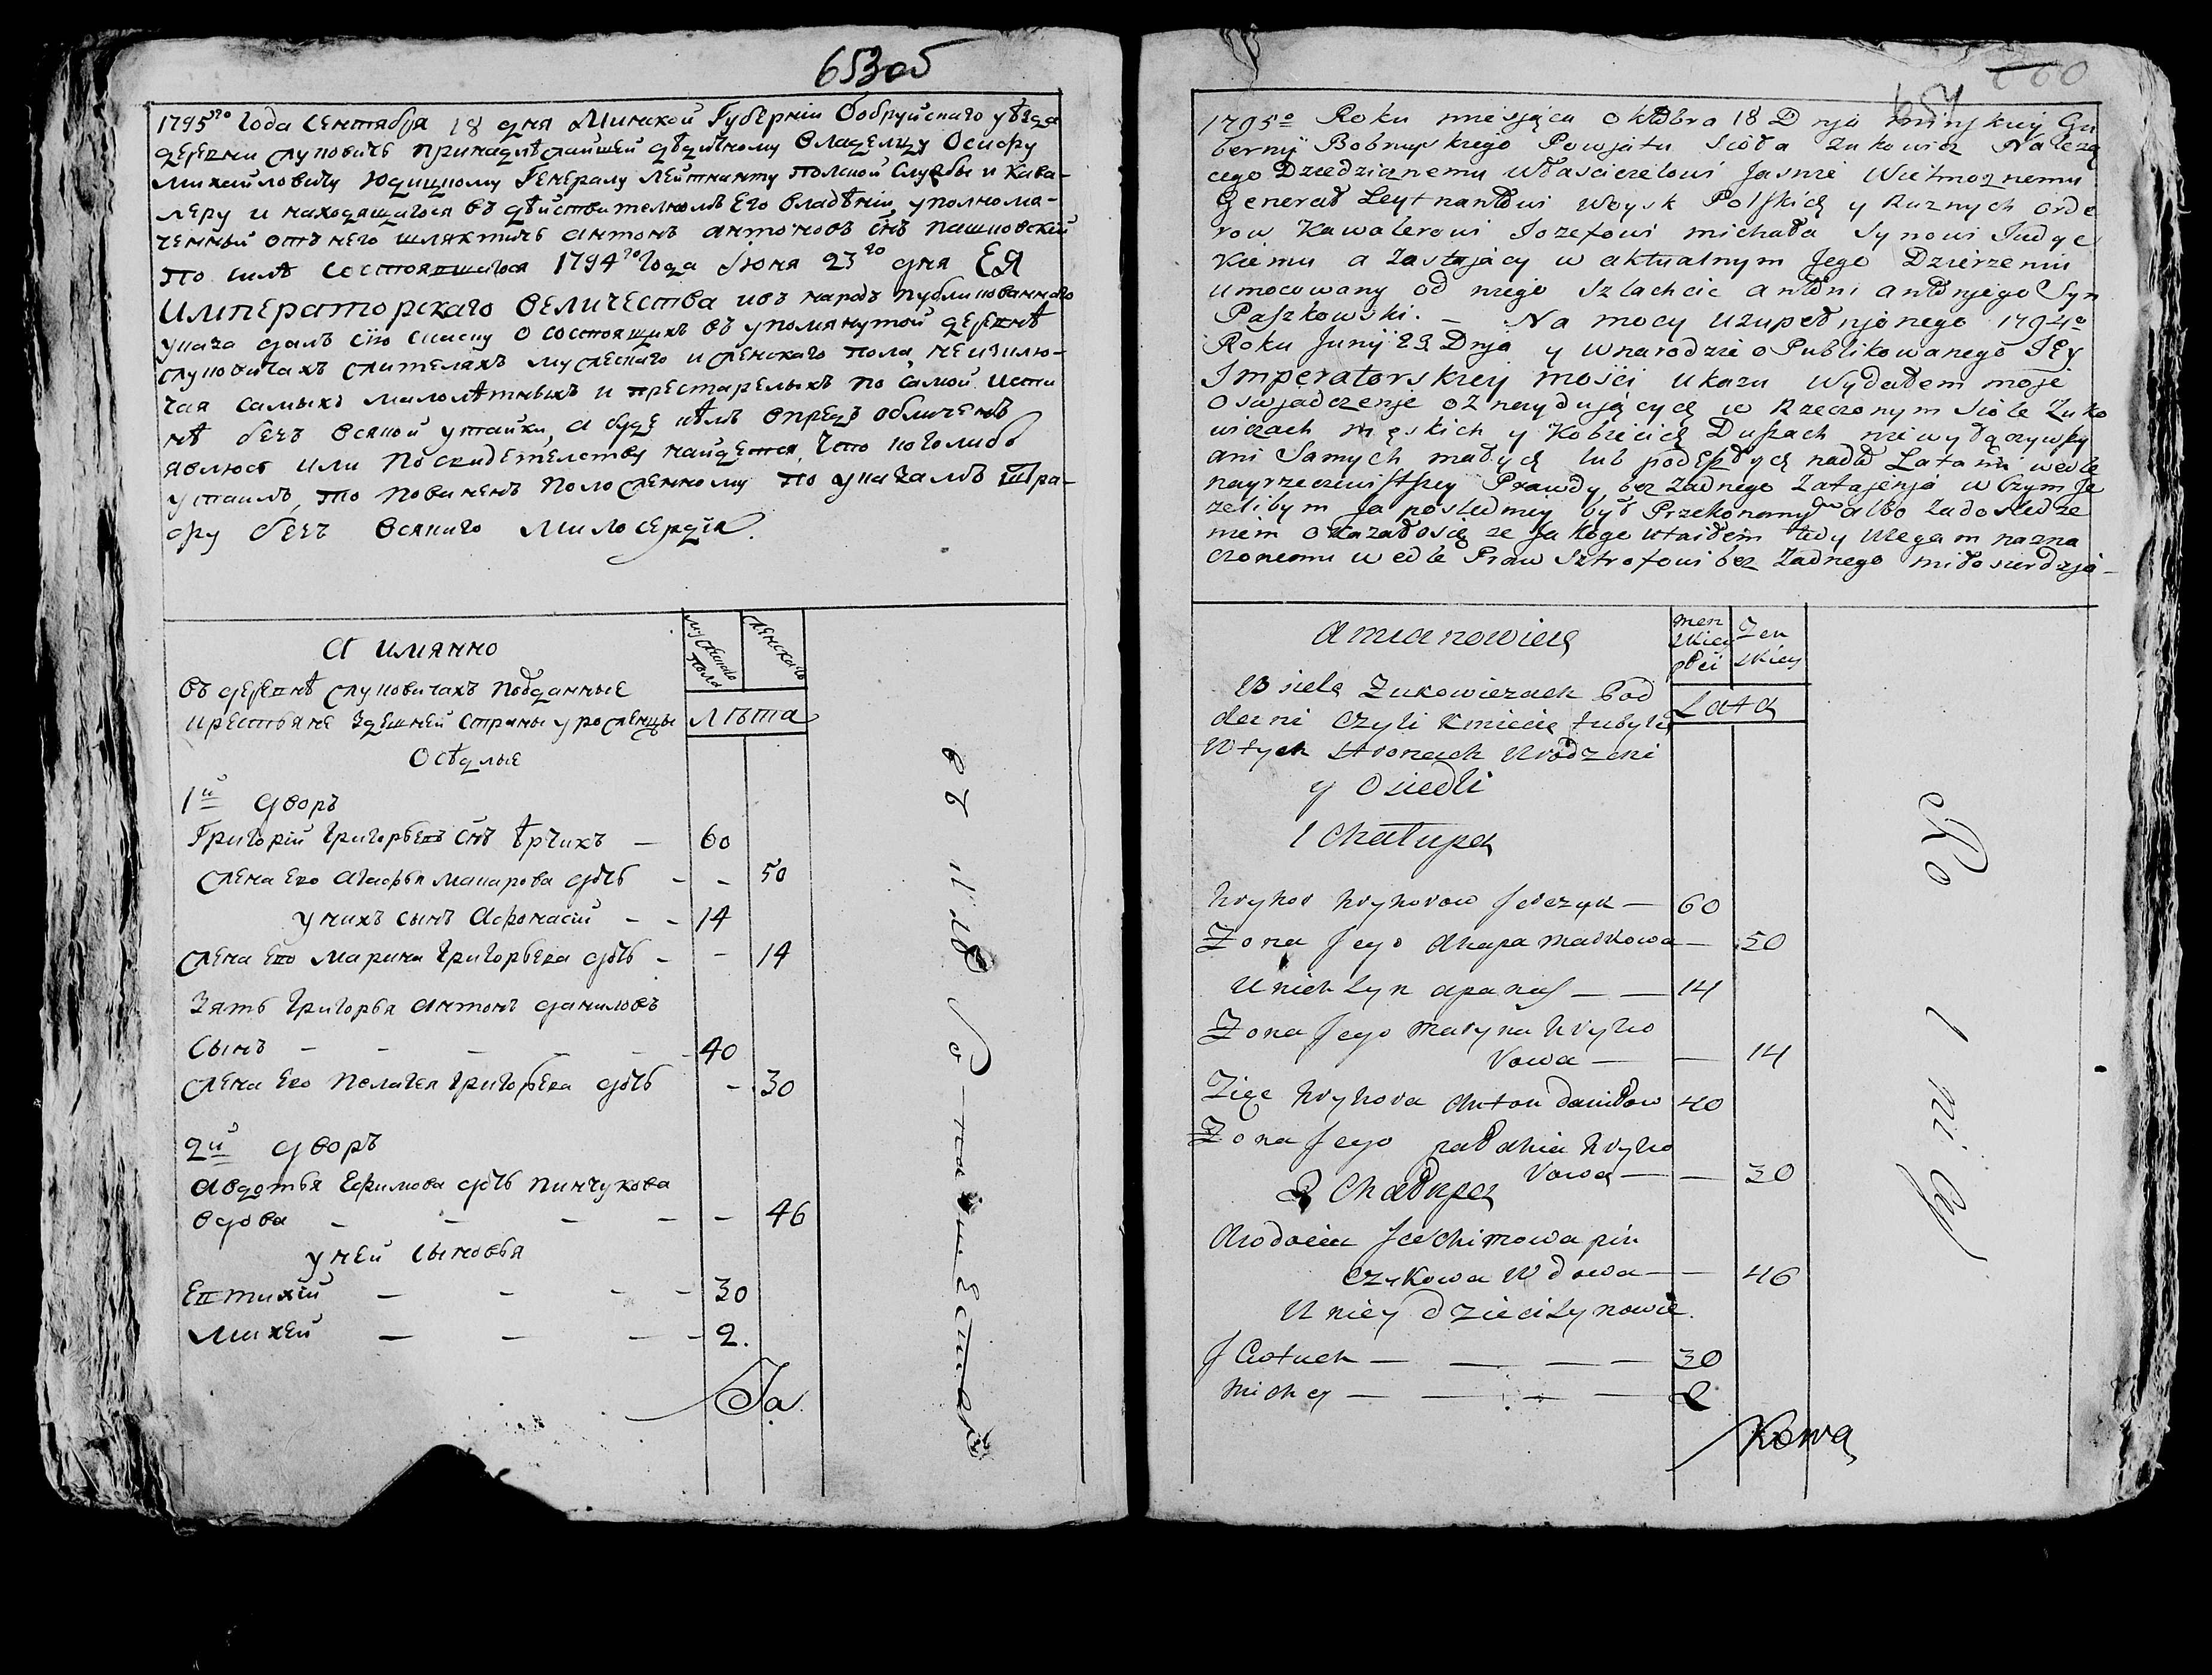 653 об
1795го Года Сентября 18 дня Минской Губерніи Бобруйскаго уѣзда
деревни Жуковичь принадлѣжащей дѣдичному Владелцу Осифу
Михайловичу Юдицкому Генералу Лейтнанту полской Службы и Кава-
леру и находящагося въ дѣйствителномъ Его владѣніи, уполномо-
ченный отъ него шляхтичь антонъ антоновъ снъ пашковскій
по силѣ состоявшагося 1794го года Іюня 23го дня ЕЯ
Императорскаго Величества изъ народъ публикованнаго
указа далъ сію скаску о состоящихъ въ упомянутой деревнѣ
жуковичахъ жителахъ мужескаго и женскаго пола, не изклю-
чая самыхъ малолѣтныхъ и престарелыхъ по самой исти
нѣ безъ всякой утайки, а буде кѣмъ впредъ обличенъ
явлюсь или по свидетелству найдется, что кого либо
утаилъ, то повиненъ положенному по указамъ Штра-
фу безъ всякаго милосердія.
А имянно
мужескаго пола
женскаго
въ деревнѣ жуковичахъ подданные
крестьяне здешней страны уроженцы
Лѣта
Осѣдлые
1й дворъ
Григорій Григорьевъ снъ ѣрчикъ — 60
жена Его Агафья Макарова дочь - - 50
у нихъ сынъ Афонасій - - 14
жена Его Марина Григорьева дочь - - 14
Зять Григорья Антонъ даниловъ
сынъ - - - - - 40
жена Его Пелагея Григорьева дочь - 30
2й дворъ
Авдотья Ефимова дочь пинчукова
вдова - - - - - 46
у ней сыновья
Евтихій - - - - 30
Михей — — — - 2.
Къ
660
654
1795o Roku miesjąca oktobra 18 Dnja minskiey Gu
bernij Bobruyskiego Powjatu Sioła Zukowicz Należą
cego Dziedzicznemu Właścicielowi Jasnie Wielmoznemu
Generał Leytnantowi Woysk Polskich y Ruznych orde
row Kawalerowi Jozefowi michała Synowi Judyc
kiemu a Zastający w aktualnym Jego Dzierzeniu
umocowany od niego szlachcic antoni antonjego Syn
Paszkowski. — Na mocy uzupełnjonego 1794o
Roku Junij 23 Dnja y wnarodzie oPublikowanego JEy
Imperatorskiey mości ukazu Wydałem moje
oswjadczenje oznaydujących w Rzeczonym siole Zuko
wiczach męskich y Kobiecich Duszach niewyłączywszy
ani Samych małych lub podeszłych nad Latami wedle
nayrzeczewistszey Prawdy bez żadnego Zatajenja w czym Je
zelibym ja posledniey był Przekonany albo Zadosledze
niem okazałosię ze Ja Kogo utaiłem tedy ulegam nazna
czonemu wedle Praw Sztrofowi bez żadnego miłosierdzja -
a mianowicie
men
skiey
płci
Zen
skiey
W siele Zukowiczach Pod
dani czyli Kmiecie tubylcy
Lata
Wtych stronach Urodzeni
y Osiedli
1 Chałupa
hryhor hryhorow Jerczyk — 60
Zona Jego Ahapa Markowa — 50
U nich Syn apanas — — 14
Zona Jego Maryna hryho
rowa — — 14
Zięc hryhora Anton daniłow 40
Zona Jego pałahia hryho
rowa — — 30
2 Chałupa
Awdocia Jachimowa pin
czukowa Wdowa — — 46
U niey dzieci Synowie.
Jewtuch — — — — 30
michey — — — — 2